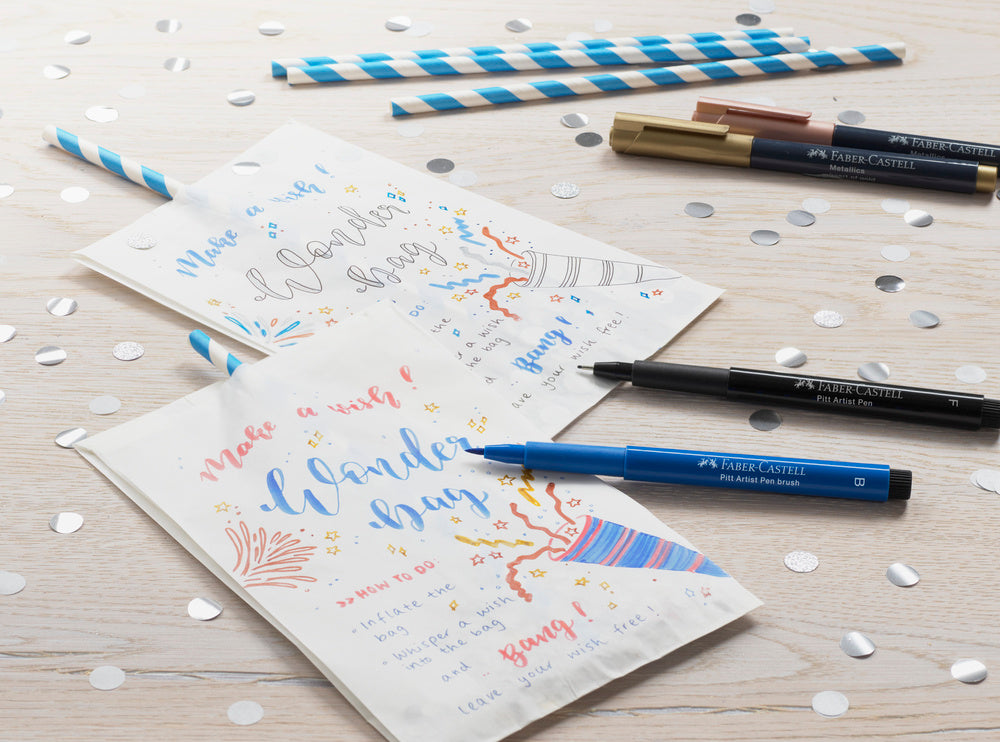 FABER-CASTELL
Metallics
FABER-CASTELL
Metallics
Make a wish!
Wonder
bag
DO
the
r a wish
he bag
a
Bang!
ave your wish free!
FABER-CASTELL
Pitt Artist Pen
F
FABER-CASTELL
Pitt Artist Pen brush
B
Make a wish!
Wonder
bag
>> HOW TO DO
• Inflate the
bag
• Whisper a wish
into the bag
and Bang!
leave your wish free!